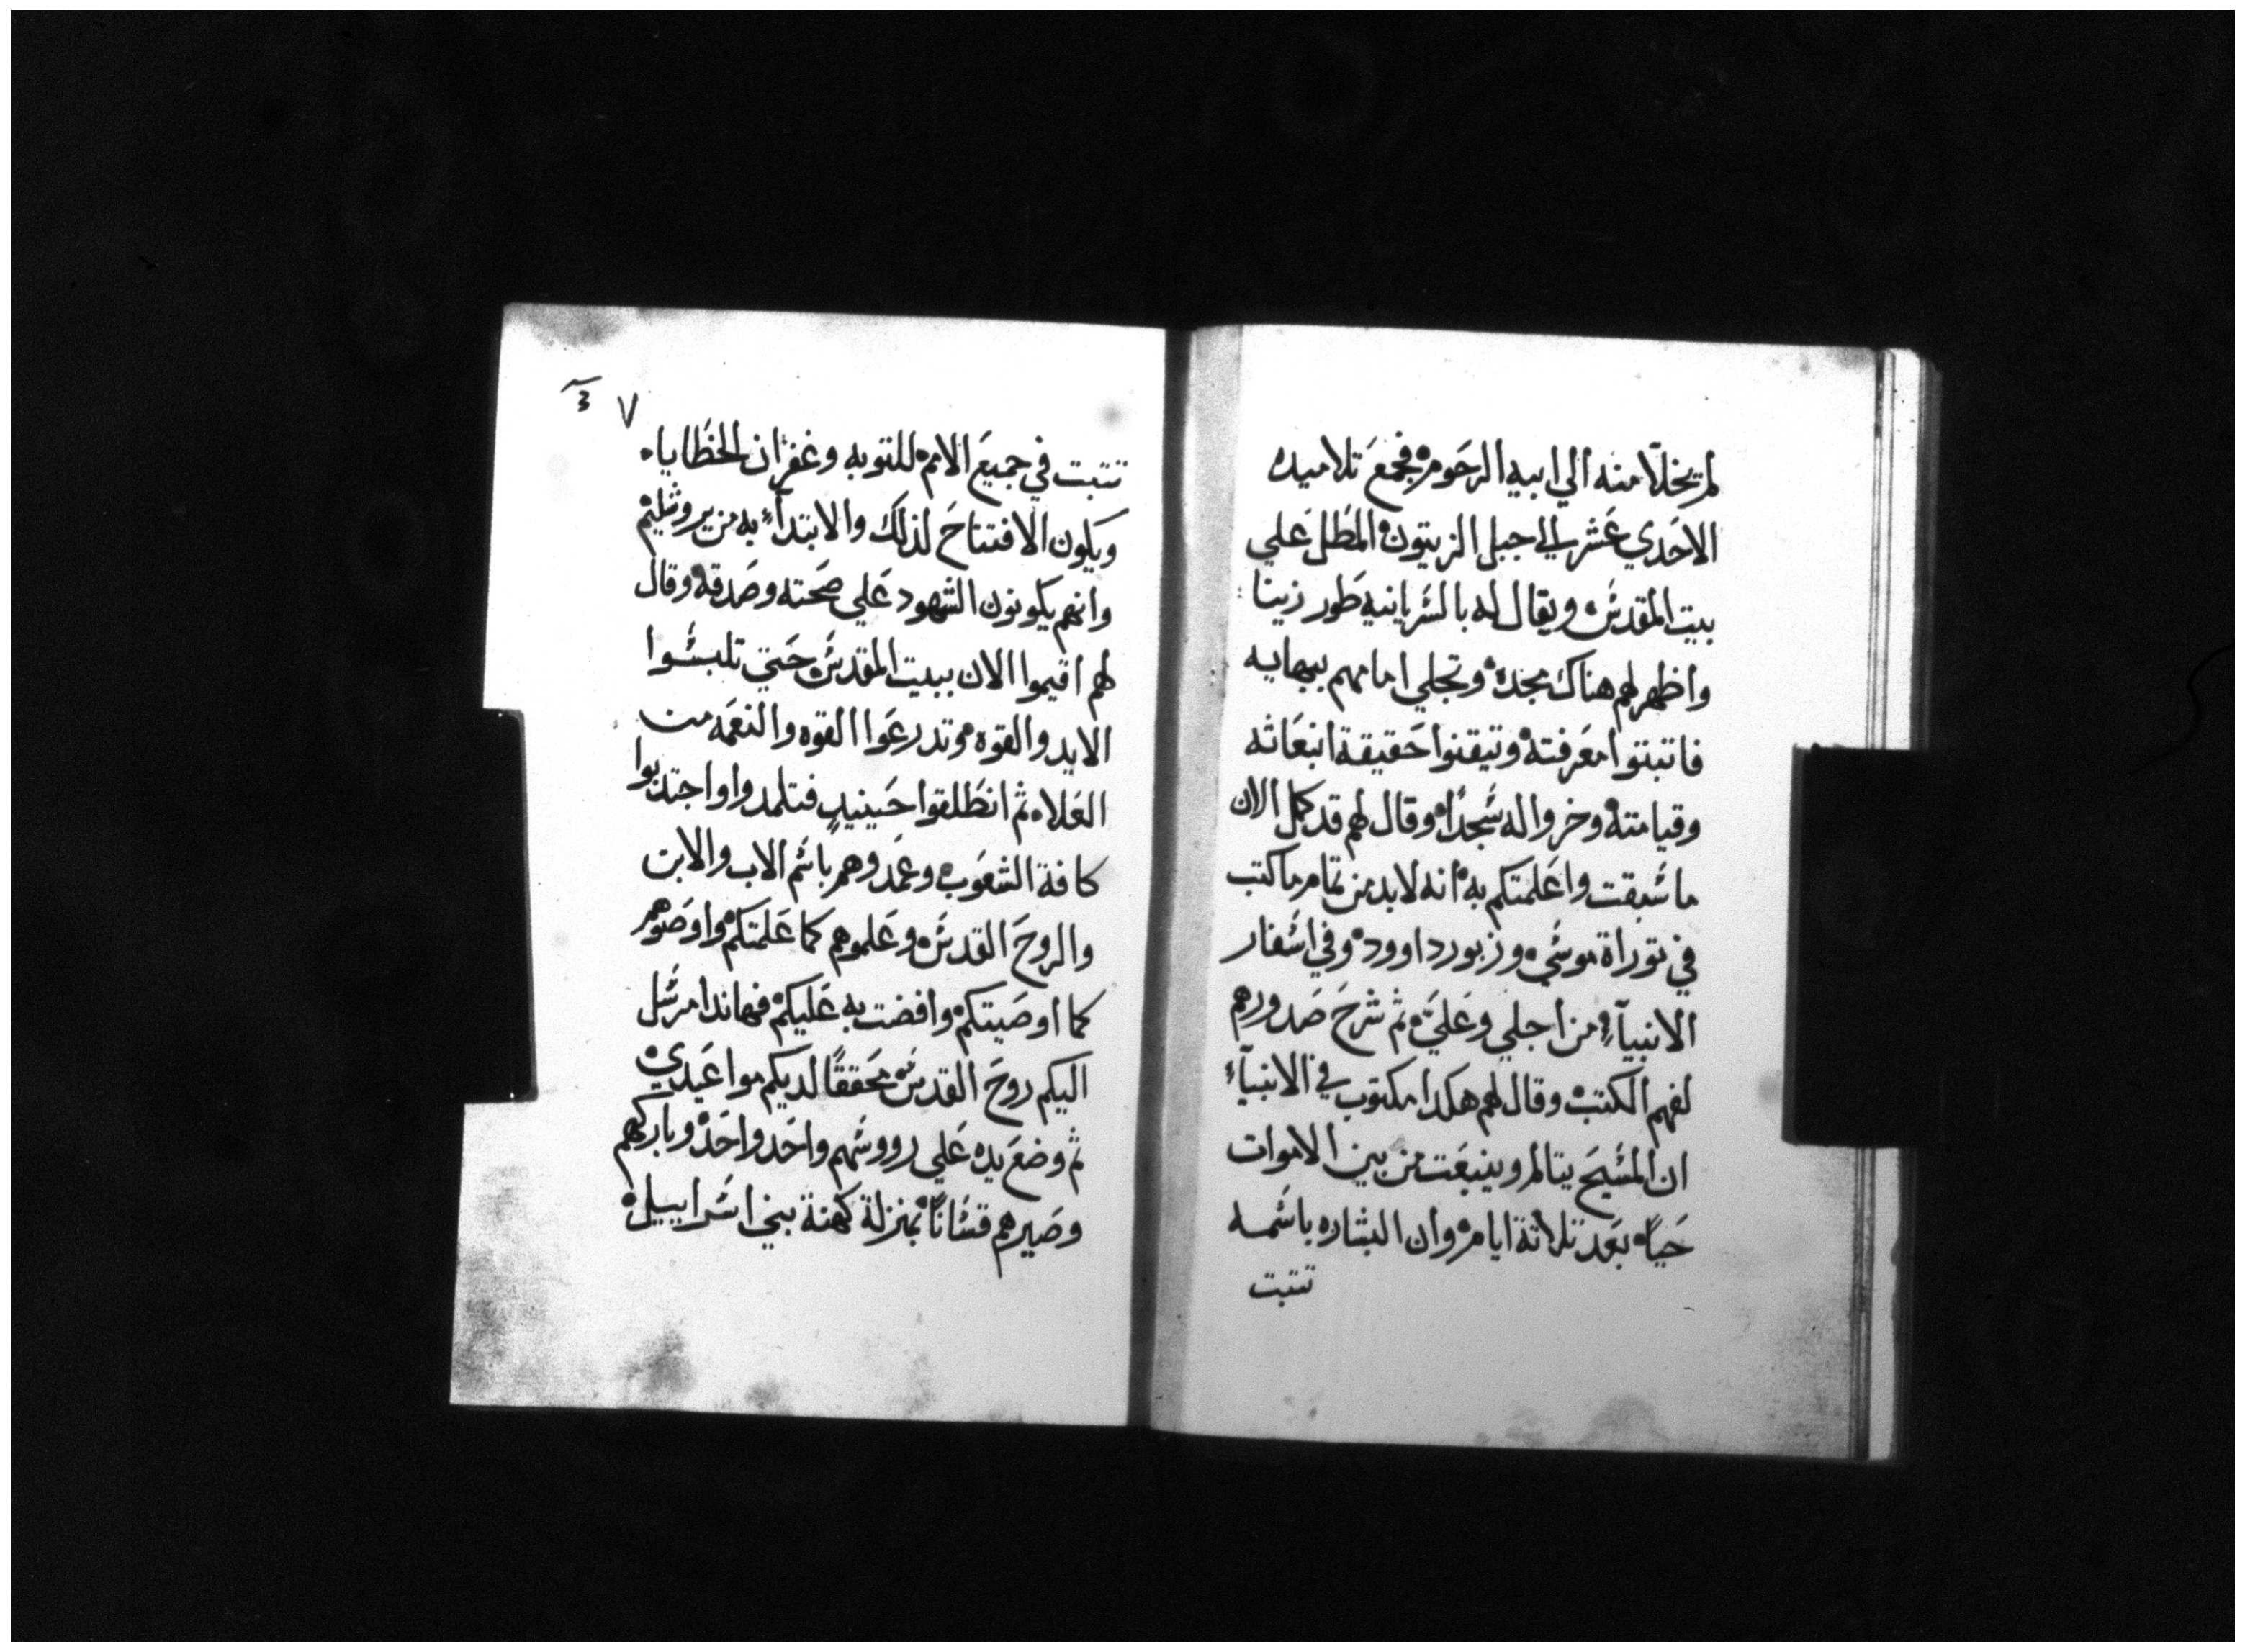 لم يخلا منه الي ابيه الرحوم، فجمع تلاميده
الاحدي عشر الي جبل الزيتون المطل علي
بيت المقدس، ويقال له بالسريانيه طور زيتا
واظهر لهم هناك مجده، وتجلي امامهم ببهايه
فاتبتوا معرفته، وتيقنوا حقيقة انبعاثه
وقيامته، وخروا له سجدًا، وقال لهم قد كمل الان
ما سبقت واعلمتكم به، انه لابد من تمام ما كتب
في توراة موسي، وزبور داوود، وفي اسفار
الانبيآء، من اجلي وعليّ، ثم شرح صدورهم
لفهم الكتب، وقال لهم هكدا مكتوب في الانبيآء
ان المسيح يتالم وينبعت من بين الاموات
حيًا، بعد تلاتة ايام، وان البشاره باسمه
تتبت
٧
تتبت في جميع الامم، للتوبه وغفران الخطايا،
ويكون الافتتاح لذلك والابتدآء به من يروشليم
وانهم يكونون الشهود علي صحته وصدقه، وقال
لهم اقيموا الان ببيت المقدس، حتي تلبسوا
الايد والقوه، وتدرعوا القوه والنعمه من
العلا، ثم انطلقوا حينيدٍ فتلمدوا واجتدبوا
كافة الشعوب، وعمدوهم باسم الاب والابن
والروح القدس، وعلموهم كما علمتكم، واوصوهم
كما اوصيتكم، وافضت به عليكم، فهااندا مرسل
اليكم روح القدس، محققًا لديكم مواعيدي،
ثم وضع يده علي رووسهم واحد واحد، وباركهم
وصيرهم قسانًا، بمنزلة كهنة بني اسراييل،